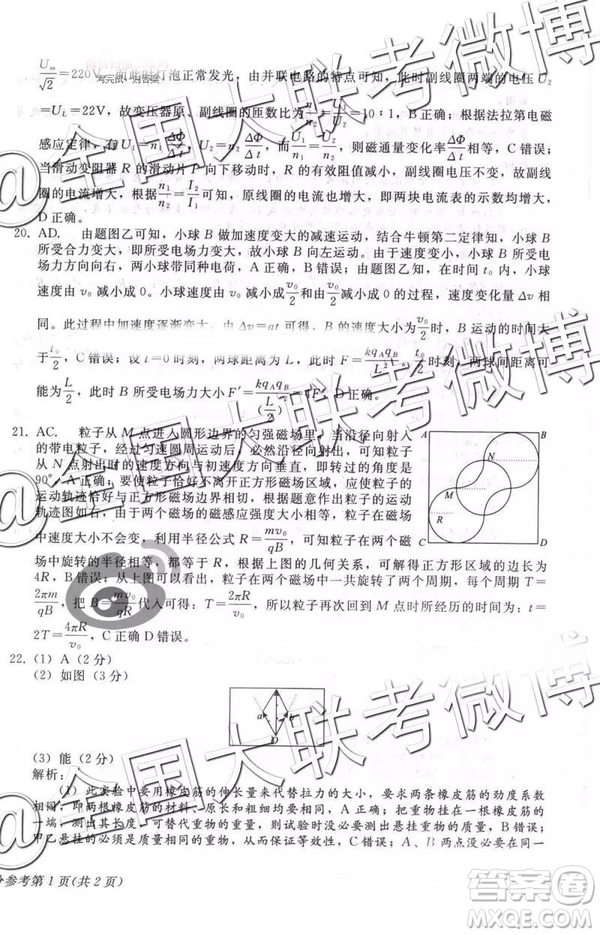 U_m/√2=220V, 泡正常发光, 由并联电路的特点可知, 副线圈两端的电压 U₂
=U_L=22V, 故变压器原、副线圈的匝数比为 =10∶1, B正确; 根据法拉第电磁
感应定律, 有U₁/n₁=ΔΦ/Δt, U₂/n₂=ΔΦ/Δt, 而U₁/n₁=U₂/n₂, 则磁通量变化率相等, C错误;
当滑动变阻器 R 的滑动片 P 向下移动时, R 的有效阻值减小, 副线圈电压不变, 故副线
圈的电流增大, 根据n₁/n₂=I₂/I₁可知, 原线圈的电流也增大, 即两块电流表的示数都增大,
D正确。
20. AD. 由题图乙可知, 小球 B 做加速度变大的减速运动, 结合牛顿第二定律知, 小球 B
所受合力变大, 即所受电场力变大, 故 B 向左运动。由于速度变小, 则 B 所受电
场力方向向右, 两小球带同种电荷, A正确, B错误; 由题图乙知, 在时间 t₀ 内, 小
球速度由 v₀ 减小成 0。小球速度由 v₀ 减小成v₀/2和由v₀/2减小成 0 的过程, 速度变化量 Δv 相
同。此过程中加速度逐渐变大, 由 Δv=at 可得, B 速度由 v₀ 减小成v₀/2运动的时间大
于t₀/2, C错误; 设 t=0 时刻, 两球距离为 L, 此时 F=kq_Aq_B/L², 时刻, 两球间距离可
能为L/2, 此时 B 所受电场力大小 F′=kq_Aq_B/(L/2)²=4F, D正确。
21. AC. 粒子从 M 点进入圆形边界的匀强磁场里, 当沿径向射入
的带电粒子, 经过匀速圆周运动后 必然沿径向射出, 可知粒子
从 N 点射出时的速度方向与初速度方向垂直, 即偏转的角度是
90°, A正确; 要使粒子恰好不离开正方形磁场区域, 应使粒子的
运动轨迹恰好与正方形磁场边界相切, 根据题意作出粒子的运动
轨迹图如右, 由于两个磁场的磁感应强度大小相等, 粒子在磁场
中速度大小不会变, 利用半径公式 R=mv₀/qB, 可知粒子在两个磁
场中旋转的半径相等, 都等于 R, 根据上图的几何关系, 可解得正方形区域的边长为
4R, B错误; 从上图可以看出, 粒子在两个磁场中一共旋转了两个周期, 每个周期 T=
2πm/qB, 把 B=mv₀/qR代入可得: T=2πR/v₀, 所以粒子再次回到 M 点时所经历的时间为: t=
2T=4πR/v₀, C正确 D错误。
A
B
N
M
R
C
D
22. (1) A (2分)
(2) 如图 (3分)
a
b
O
(3) 能 (2分)
解析:
(1) 此实验中要用橡皮筋的伸长量大小来代替拉力的大小, 要求两条橡皮筋的劲度系数
相同, 即两根橡皮筋的材料、原长和粗细均要相同, A正确; 把重物挂在一根橡皮筋的
一端, 测出其长度, 可根据长度来代替重物的重量, 则试验时没必要测出悬挂重物的重量, B错误;
甲乙悬挂的必须是质量相同的重力, 从而保证等效性, C错误; 重复实验时没必要在同一
参考第1页(共2页)
@全国大联考微博
@全国大联考微博
@全国大联考微博
答案圈
MXQE.COM